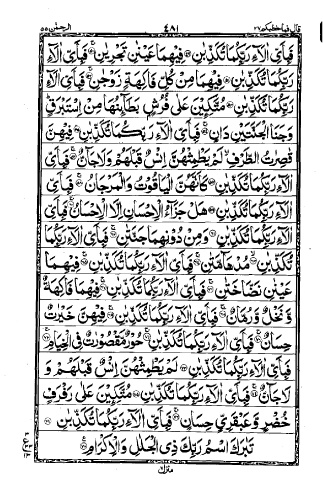 الرحمٰن ٥٥ ٤٨١ قال فما خطبكم ٢٧
فَبِاَيِّ اٰلَآءِ رَبِّكُمَا تُكَذِّبٰنِ فِيْهِمَا عَيْنٰنِ تَجْرِيٰنِ فَبِاَيِّ اٰلَآءِ
رَبِّكُمَا تُكَذِّبٰنِ فِيْهِمَا مِنْ كُلِّ فَاكِهَةٍ زَوْجٰنِ فَبِاَيِّ اٰلَآءِ
رَبِّكُمَا تُكَذِّبٰنِ مُتَّكِـِٕيْنَ عَلٰى فُرُشٍۭ بَطَآىِٕنُهَا مِنْ اِسْتَبْرَقٍ
وَجَنَا الْجَنَّتَيْنِ دَانٍ فَبِاَيِّ اٰلَآءِ رَبِّكُمَا تُكَذِّبٰنِ فِيْهِنَّ
قٰصِرٰتُ الطَّرْفِ لَمْ يَطْمِثْهُنَّ اِنْسٌ قَبْلَهُمْ وَلَا جَآنٌّ فَبِاَيِّ
اٰلَآءِ رَبِّكُمَا تُكَذِّبٰنِ كَاَنَّهُنَّ الْيَاقُوْتُ وَالْمَرْجَانُ فَبِاَيِّ
اٰلَآءِ رَبِّكُمَا تُكَذِّبٰنِ هَلْ جَزَآءُ الْاِحْسَانِ اِلَّا الْاِحْسَانُ فَبِاَيِّ
اٰلَآءِ رَبِّكُمَا تُكَذِّبٰنِ وَمِنْ دُوْنِهِمَا جَنَّتٰنِ فَبِاَيِّ اٰلَآءِ رَبِّكُمَا
تُكَذِّبٰنِ مُدْهَآمَّتٰنِ فَبِاَيِّ اٰلَآءِ رَبِّكُمَا تُكَذِّبٰنِ فِيْهِمَا
عَيْنٰنِ نَضَّاخَتٰنِ فَبِاَيِّ اٰلَآءِ رَبِّكُمَا تُكَذِّبٰنِ فِيْهِمَا فَاكِهَةٌ
وَّنَخْلٌ وَّرُمَّانٌ فَبِاَيِّ اٰلَآءِ رَبِّكُمَا تُكَذِّبٰنِ فِيْهِنَّ خَيْرٰتٌ
حِسَانٌ فَبِاَيِّ اٰلَآءِ رَبِّكُمَا تُكَذِّبٰنِ حُوْرٌ مَّقْصُوْرٰتٌ فِى الْخِيَامِ
فَبِاَيِّ اٰلَآءِ رَبِّكُمَا تُكَذِّبٰنِ لَمْ يَطْمِثْهُنَّ اِنْسٌ قَبْلَهُمْ وَ
لَا جَآنٌّ فَبِاَيِّ اٰلَآءِ رَبِّكُمَا تُكَذِّبٰنِ مُتَّكِـِٕيْنَ عَلٰى رَفْرَفٍ
خُضْرٍ وَّعَبْقَرِيٍّ حِسَانٍ فَبِاَيِّ اٰلَآءِ رَبِّكُمَا تُكَذِّبٰنِ
تَبٰرَكَ اسْمُ رَبِّكَ ذِى الْجَلٰلِ وَالْاِكْرَامِ
منزل